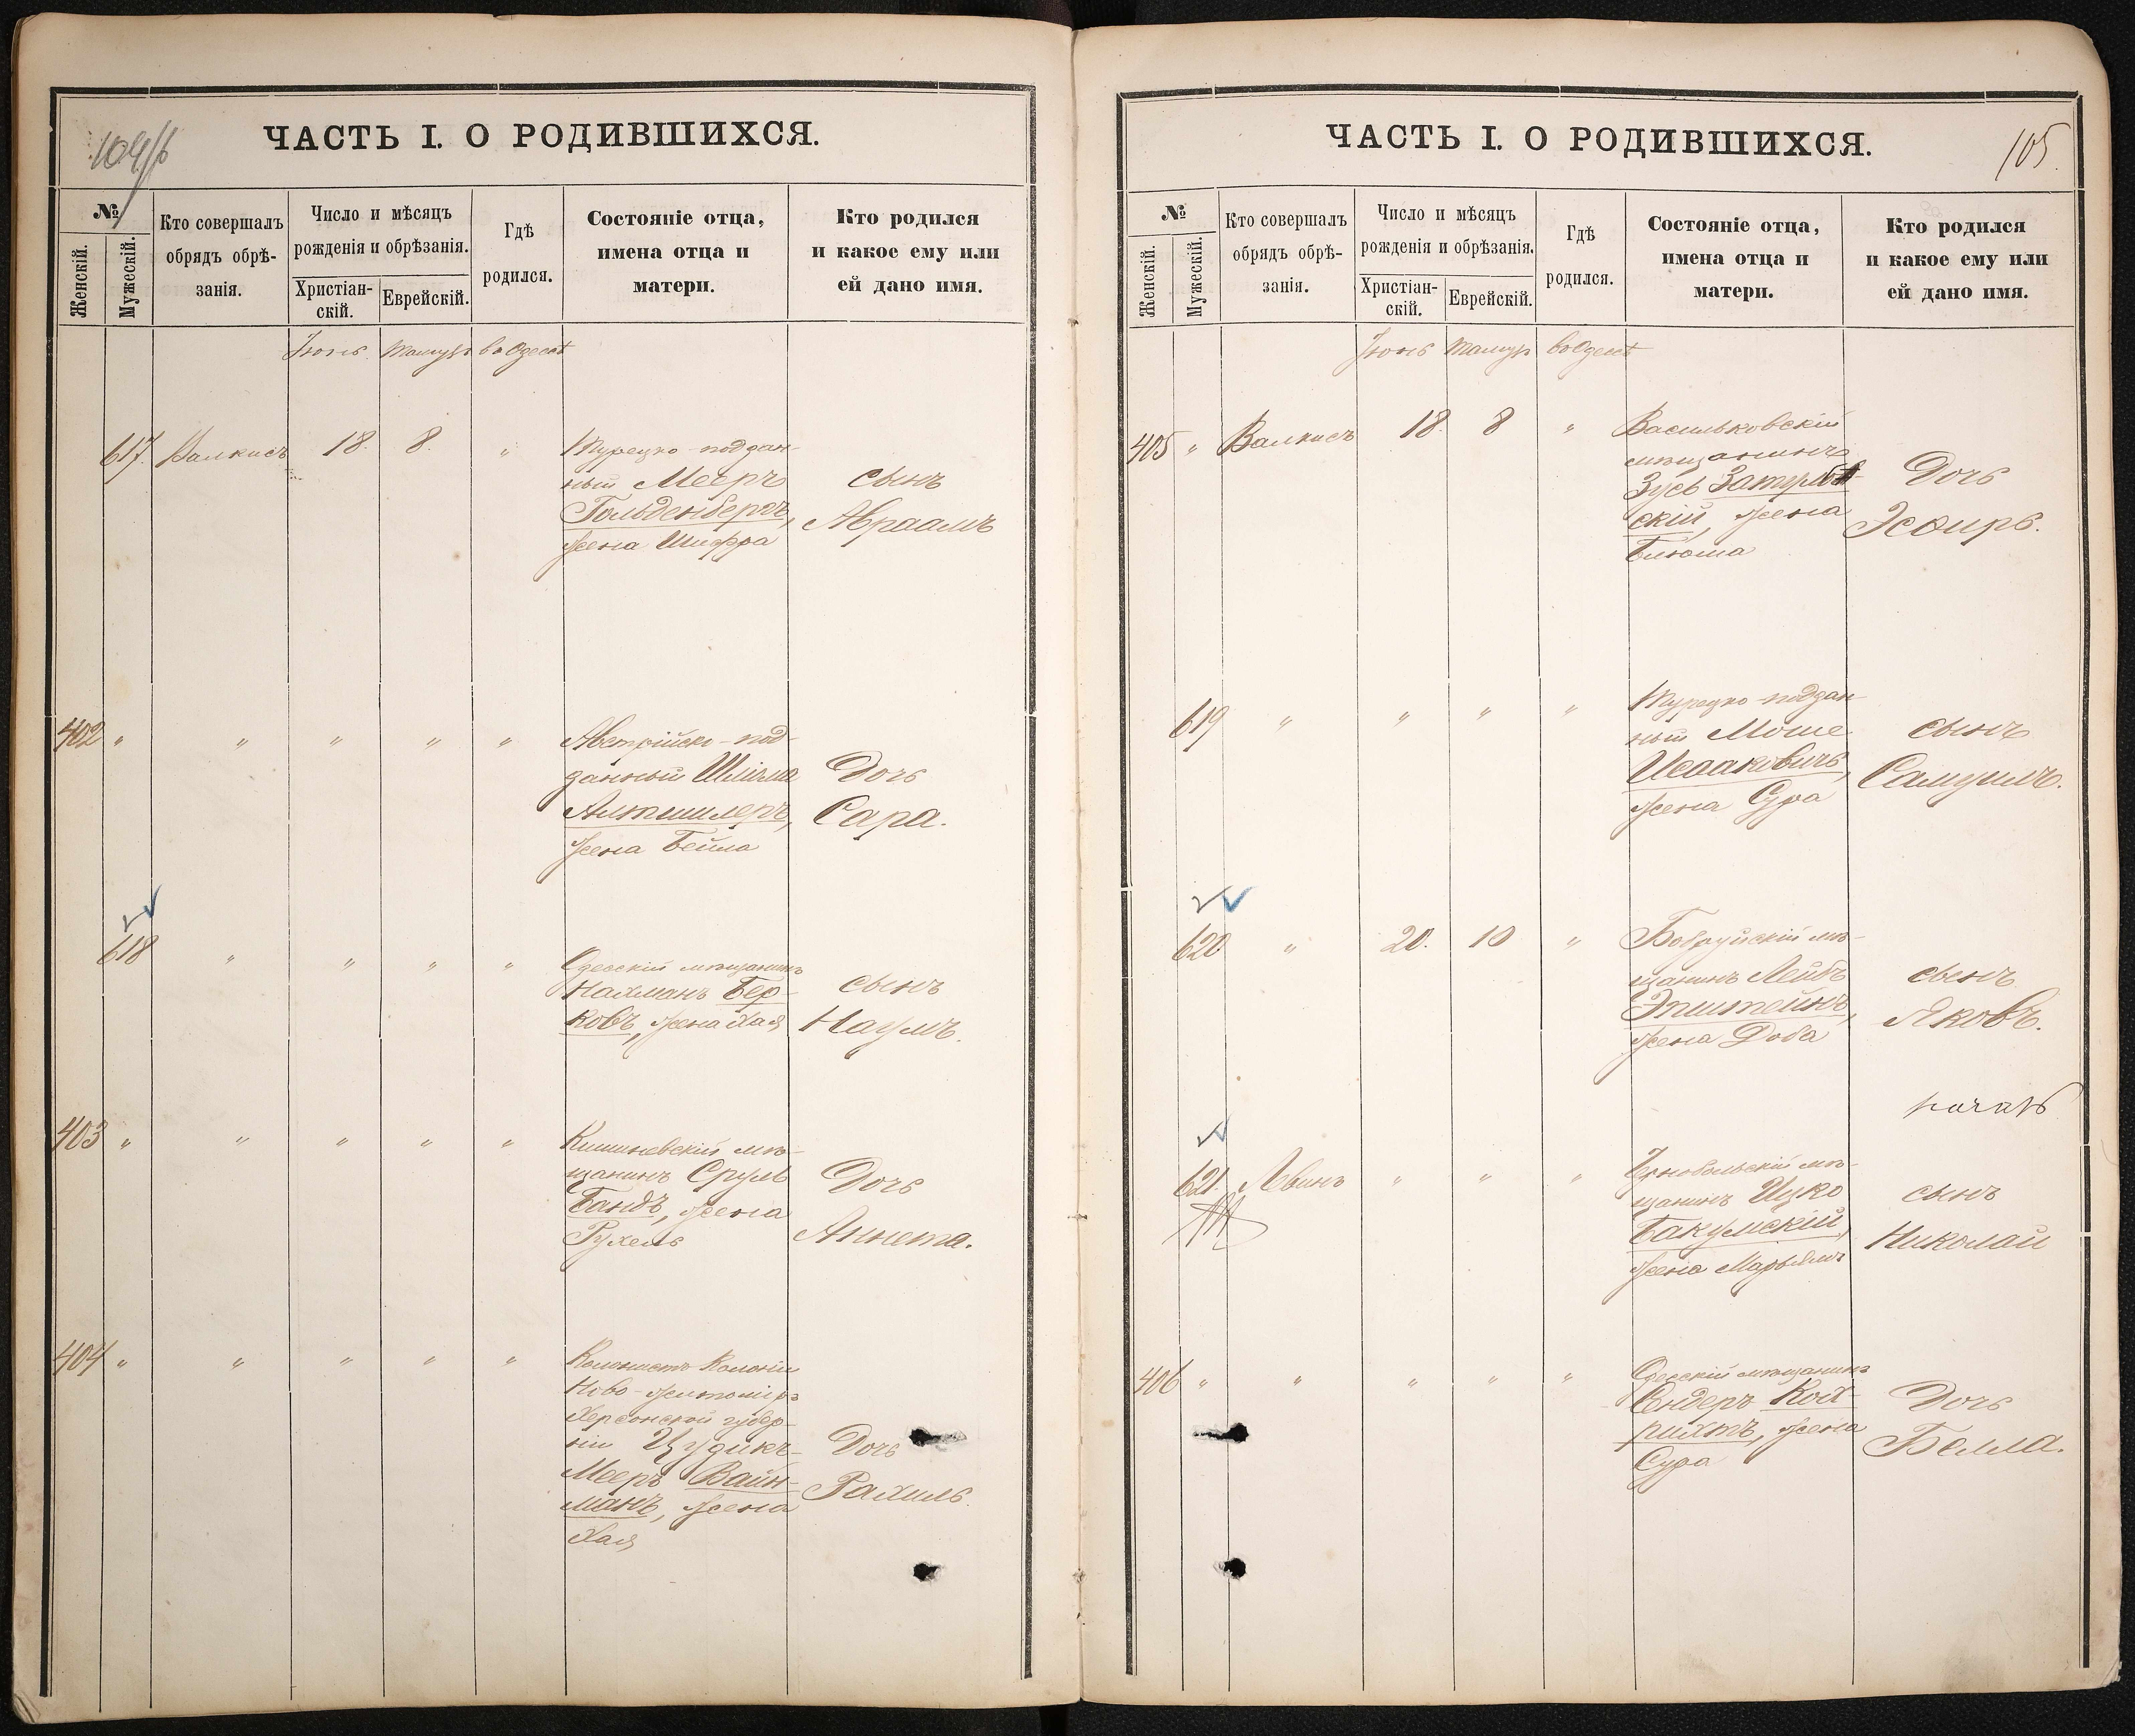 104/б
ЧАСТЬ I. О РОДИВШИХСЯ.
№
Женскій.
Мужескій.
Кто совершалъ
обрядъ обрѣ-
занія.
Число и мѣсяцъ
рожденія и обрѣзанія.
Христіан-
скій.
Еврейскій.
Гдѣ
родился.
Состояніе отца,
имена отца и
матери.
Кто родился
и какое ему или
ей дано имя.
Іюнь Тамузъ въ Одессѣ
617. Валкисъ 18. 8. "
Турецко-поддан-
ный Мееръ
Гольденбергъ,
жена Шифра
сынъ
Авраамъ
402 " " " " "
Австрійско-под-
данный Шліома
Альтшилеръ,
жена Бейла
Дочь
Сара.
618 " " " "
Одесскій мѣщанинъ
Нахманъ Бер-
ковъ, жена Хая
сынъ
Наумъ.
403 " " " " "
Кишиневскій мѣ-
щанинъ Сруль
Бандъ, жена
Рухель
Дочь
Аннета.
404 " " " " "
Колонистъ Колоніи
Ново-Житоміръ
Херсонской губер-
ніи Цудикъ-
Мееръ Вайн-
манъ, жена
Хая
Дочь
Рахиль.
105.
ЧАСТЬ I. О РОДИВШИХСЯ.
№
Женскій.
Мужескій.
Кто совершалъ
обрядъ обрѣ-
занія.
Число и мѣсяцъ
рожденія и обрѣзанія.
Христіан-
скій.
Еврейскій.
Гдѣ
родился.
Состояніе отца,
имена отца и
матери.
Кто родился
и какое ему или
ей дано имя.
Іюнь Тамузъ въ Одессѣ
405 " Валкисъ 18. 8 "
Васильковскій
мѣщанинъ
Зусь
скій, жена
Блюма
Дочь
Эсфирь.
619 " " " "
Турецко-поддан-
ный Моше
Исааковичъ,
жена Сура
сынъ
Самуилъ.
620 " 20. 10 "
Бобруйскій мѣ-
щанинъ Лейбъ
Эпштейнъ,
жена Доба
сынъ
Яковъ.
621. Лвинъ " " "
Чернобыльскій мѣ-
щанинъ Ицко
Бакумскій,
жена Марьямъ
сынъ
Николай
406 " " " " "
Одесскій мѣщанинъ
Сендеръ Кох-
рихтъ, жена
Сура
Дочь
Белла.